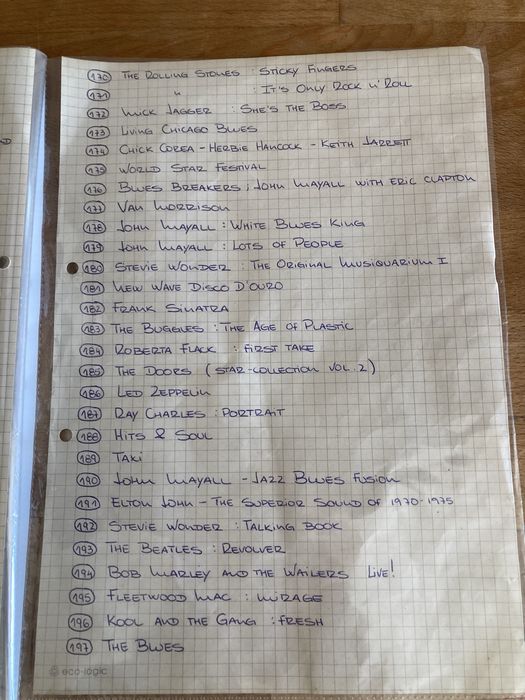 170 THE ROLLING STONES : STICKY FINGERS
171 " : IT'S ONLY ROCK N' ROLL
172 MICK JAGGER : SHE'S THE BOSS
173 LIVING CHICAGO BLUES
174 CHICK COREA - HERBIE HANCOCK - KEITH JARRETT
175 WORLD STAR FESTIVAL
176 BLUES BREAKERS ; JOHN MAYALL WITH ERIC CLAPTON
177 VAN MORRISON
178 JOHN MAYALL : WHITE BLUES KING
179 JOHN MAYALL : LOTS OF PEOPLE
180 STEVIE WONDER : THE ORIGINAL MUSIQUARIUM I
181 NEW WAVE DISCO D'OURO
182 FRANK SINATRA
183 THE BUGGLES : THE AGE OF PLASTIC
184 ROBERTA FLACK : FIRST TAKE
185 THE DOORS (STAR-COLLECTION VOL. 2)
186 LED ZEPPELIN
187 RAY CHARLES : PORTRAIT
188 HITS & SOUL
189 TAKI
190 JOHN MAYALL - JAZZ BLUES FUSION
191 ELTON JOHN - THE SUPERIOR SOUND OF 1970-1975
192 STEVIE WONDER : TALKING BOOK
193 THE BEATLES : REVOLVER
194 BOB MARLEY AND THE WAILERS LIVE!
195 FLEETWOOD MAC : MIRAGE
196 KOOL AND THE GANG : FRESH
197 THE BLUES
eco-logic